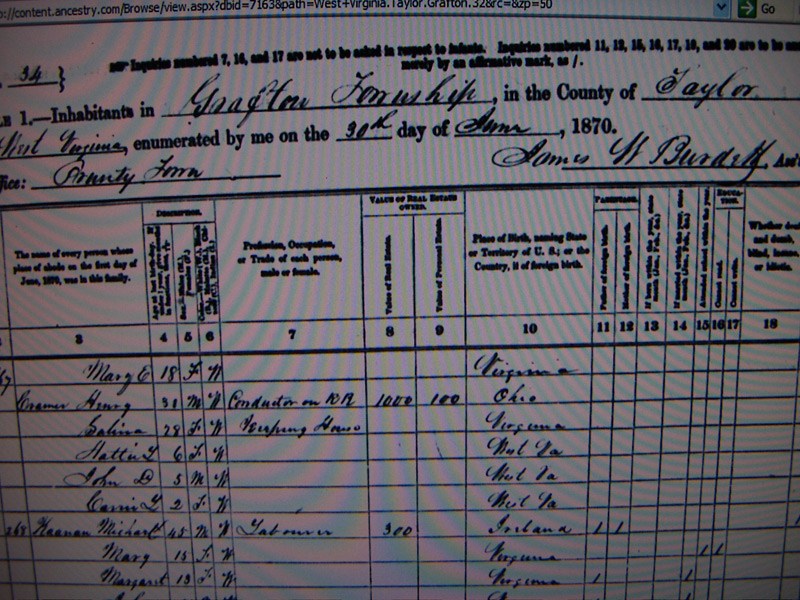 o://content.ancestry.com/Browse/view.aspx?dbid=7163&path=West+Virginia.Taylor.Grafton.32&rc=&zp=50 Go
34} Inquiries numbered 7, 16, and 17 are not to be asked in respect to infants. Inquiries numbered 11, 12, 15, 16, 17, 19, and 20 are to be
merely by an affirmative mark, as /.
1.—Inhabitants in Grafton Township, in the County of Taylor
West Virginia, enumerated by me on the 30th day of June, 1870.
James W Burdett, Ass't
fice: Prunty Town
DESCRIPTION. VALUE OF REAL ESTATE OWNED. PARENTAGE.
The name of every person whose place of abode on the first day of June, 1870, was in this family.
Profession, Occupation, or Trade of each person, male or female.
Value of Real Estate.
Value of Personal Estate.
Place of Birth, naming State or Territory of U. S.; or the Country, if of foreign birth.
Father of foreign birth.
Mother of foreign birth.
Cannot read.
Cannot write.
Whether deaf and dumb, blind, insane, or idiotic.
3 4 5 6 7 8 9 10 11 12 13 14 15 16 17 18
67 Mary E 18 F W Virginia
Cramer Henry 31 M W Conductor on RR 1000 100 Ohio
Salina 28 F W Keeping House Virginia
Hattie L 6 F W West Va
John D 3 M W West Va
Carrie L 2 F W West Va
268 Keenan Michael 45 M W Labourer 300 Ireland 1 1
Mary 15 F W Virginia 1 1
Margaret 13 F W Virginia 1 1